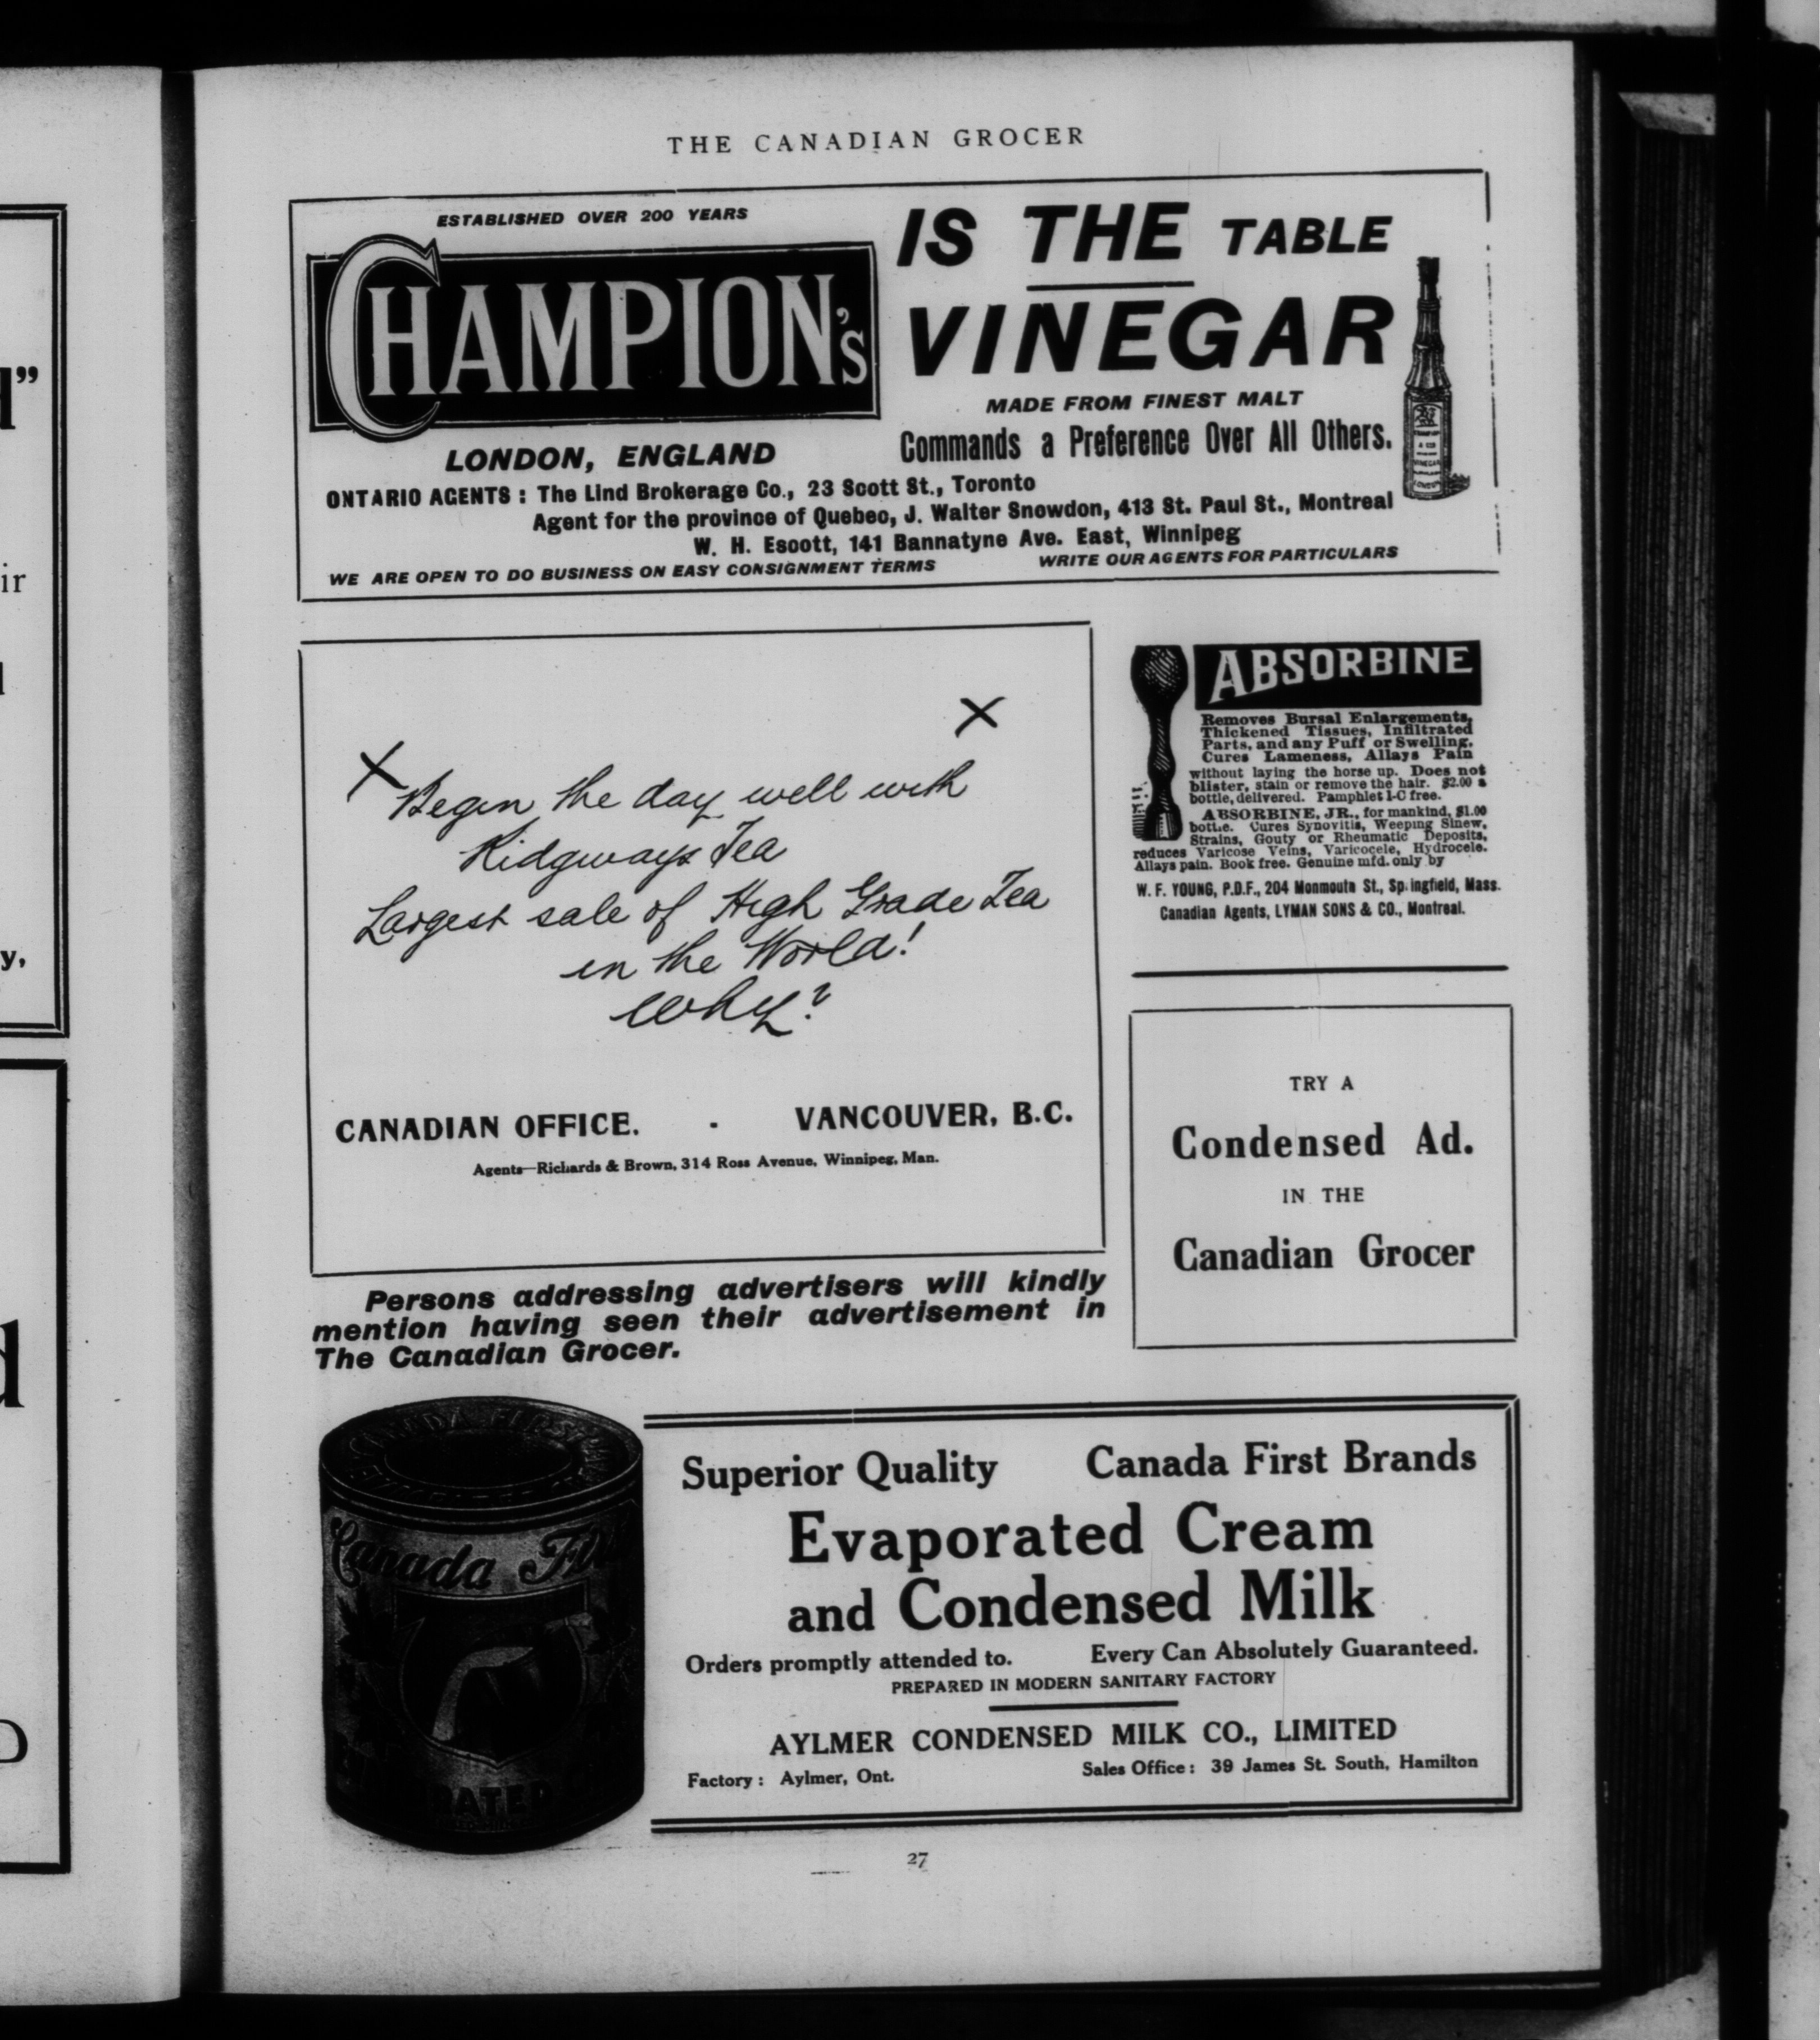 THE CANADIAN GROCER
ESTABLISHED OVER 200 YEARS
CHAMPION's
LONDON, ENGLAND
IS THE TABLE
VINEGAR
MADE FROM FINEST MALT
Commands a Preference Over All Others.
ONTARIO AGENTS: The Lind Brokerage Co., 23 Scott St., Toronto
Agent for the province of Quebec, J. Walter Snowdon, 413 St. Paul St., Montreal
W. H. Escott, 141 Bannatyne Ave. East, Winnipeg
WE ARE OPEN TO DO BUSINESS ON EASY CONSIGNMENT TERMS WRITE OUR AGENTS FOR PARTICULARS
Begin the day well with
Ridgways Tea
Largest sale of High Grade Tea
in the World!
Why?
CANADIAN OFFICE. - VANCOUVER, B.C.
Agents—Richards & Brown, 314 Ross Avenue, Winnipeg, Man.
Persons addressing advertisers will kindly
mention having seen their advertisement in
The Canadian Grocer.
ABSORBINE
Removes Bursal Enlargements,
Thickened Tissues, Infiltrated
Parts, and any Puff or Swelling,
Cures Lameness, Allays Pain
without laying the horse up. Does not
blister, stain or remove the hair. $2.00 a
bottle, delivered. Pamphlet 1-C free.
ABSORBINE, JR., for mankind, $1.00
bottle. Cures Synovitis, Weeping Sinew,
Strains, Gouty or Rheumatic Deposits,
reduces Varicose Veins, Varicocele, Hydrocele.
Allays pain. Book free. Genuine mfd. only by
W. F. YOUNG, P.D.F., 204 Monmouth St., Springfield, Mass.
Canadian Agents, LYMAN SONS & CO., Montreal.
TRY A
Condensed Ad.
IN THE
Canadian Grocer
Canada Fir
RATED
Superior Quality Canada First Brands
Evaporated Cream
and Condensed Milk
Orders promptly attended to. Every Can Absolutely Guaranteed.
PREPARED IN MODERN SANITARY FACTORY
AYLMER CONDENSED MILK CO., LIMITED
Factory: Aylmer, Ont. Sales Office: 39 James St. South, Hamilton
27